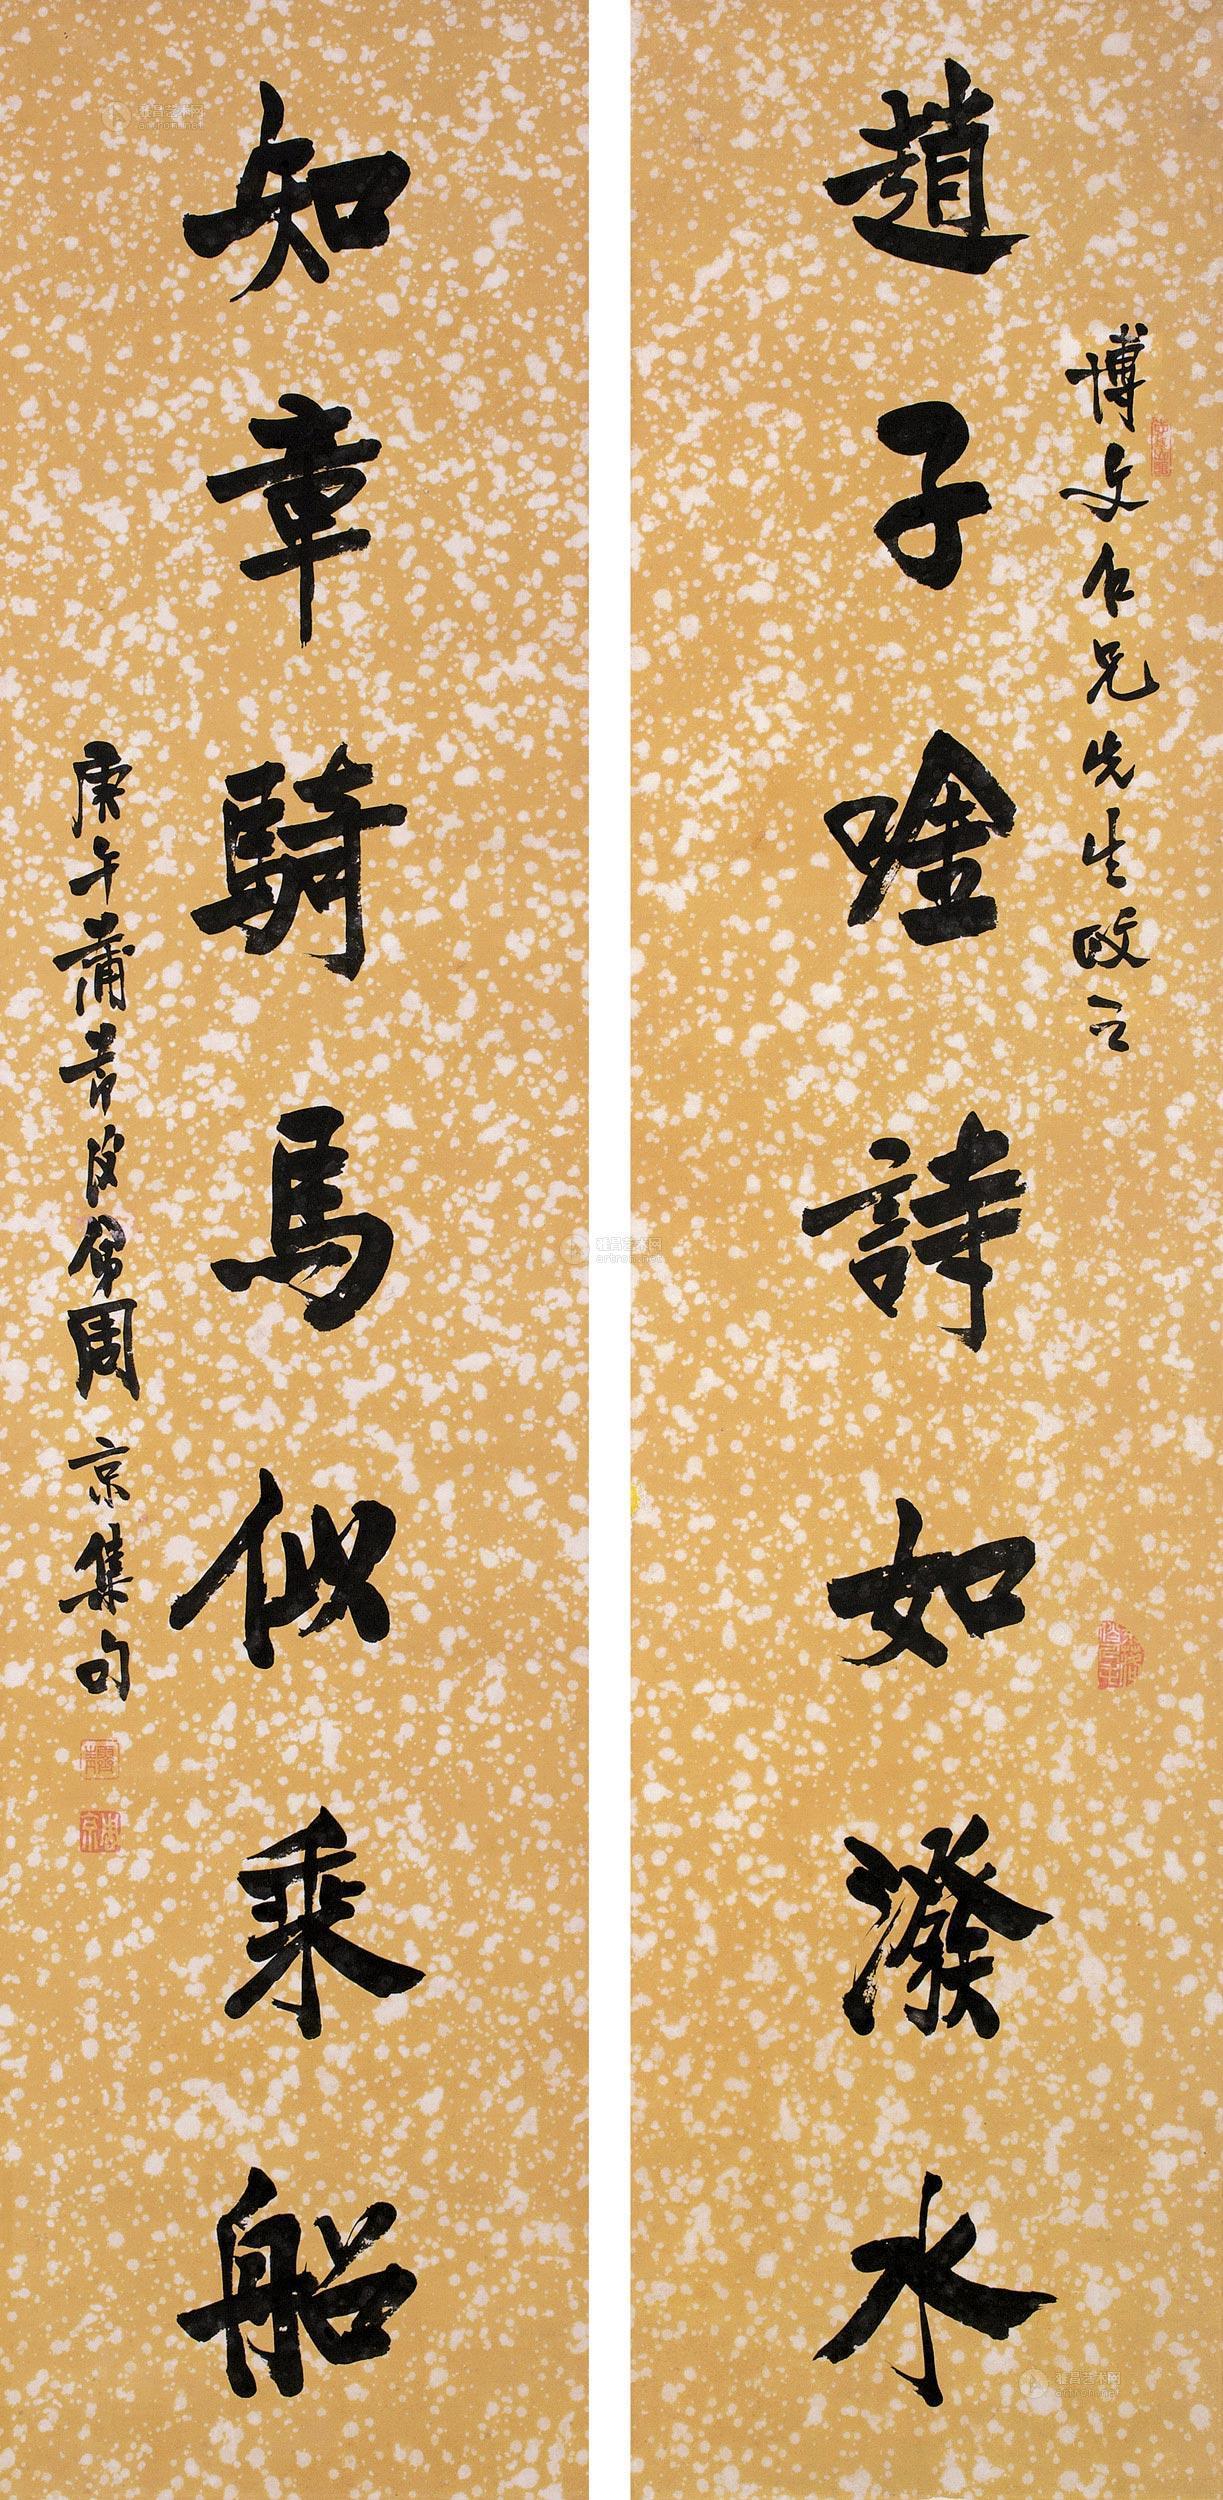 趙子唫詩如潑水
博文仁兄先生政之
知章騎馬似乘船
庚午蒲月霞周京集句
雅昌艺术网
artron.net